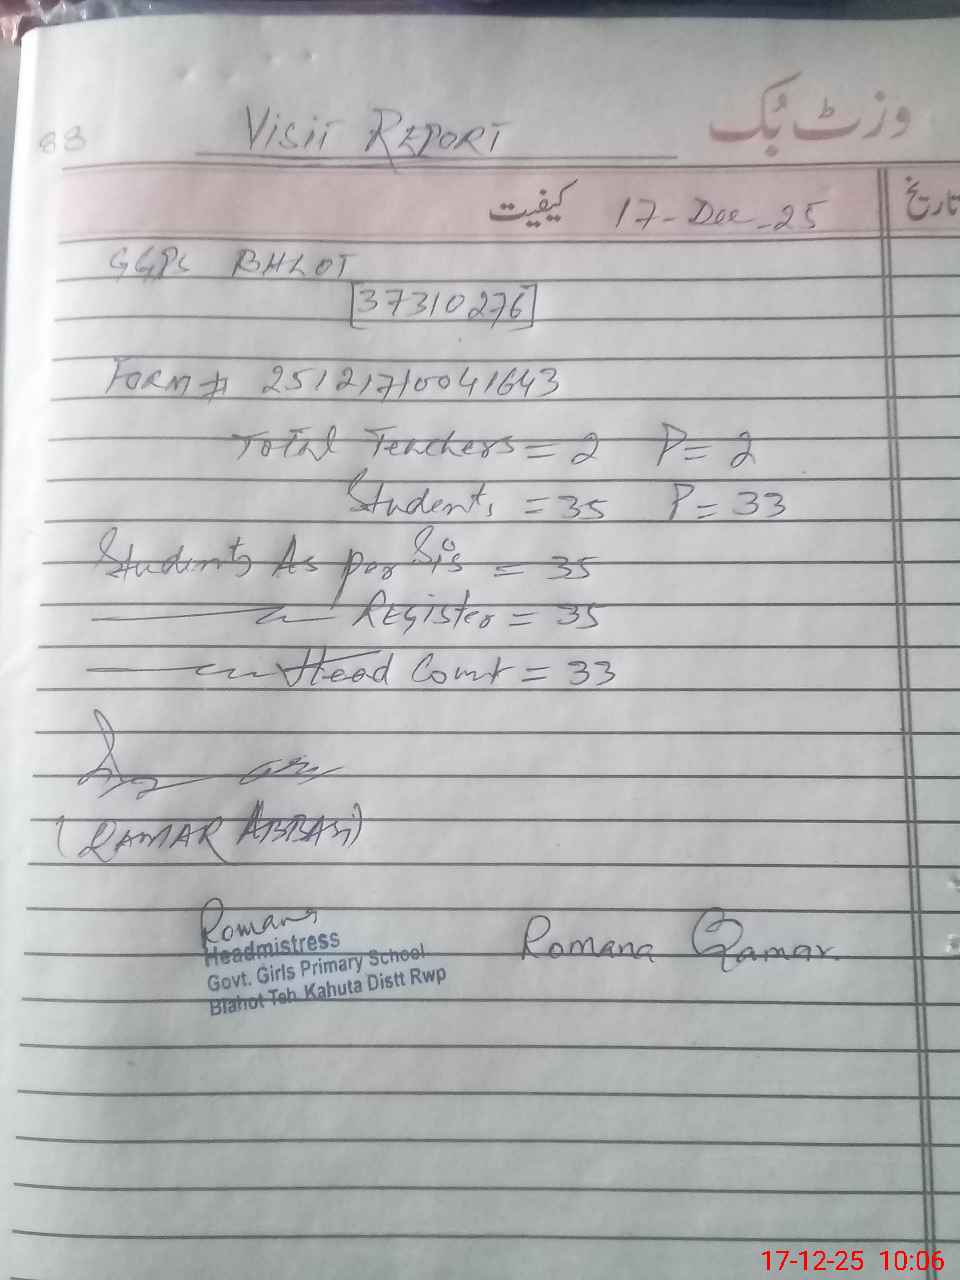 وزٹ بُک
88 VISIT REPORT
تاریخ
کیفیت 17-Dec-25
GGPS BHLOT
37310276
FORM # 25121710041643
Total Teachers = 2 P = 2
Students = 35 P = 33
Students As per Sis = 35
Register = 35
Head Count = 33
(QAMAR ABBASI)
Romana
Romana Qamar
Headmistress
Govt. Girls Primary School
Blahot Teh Kahuta Distt Rwp
17-12-25 10:06